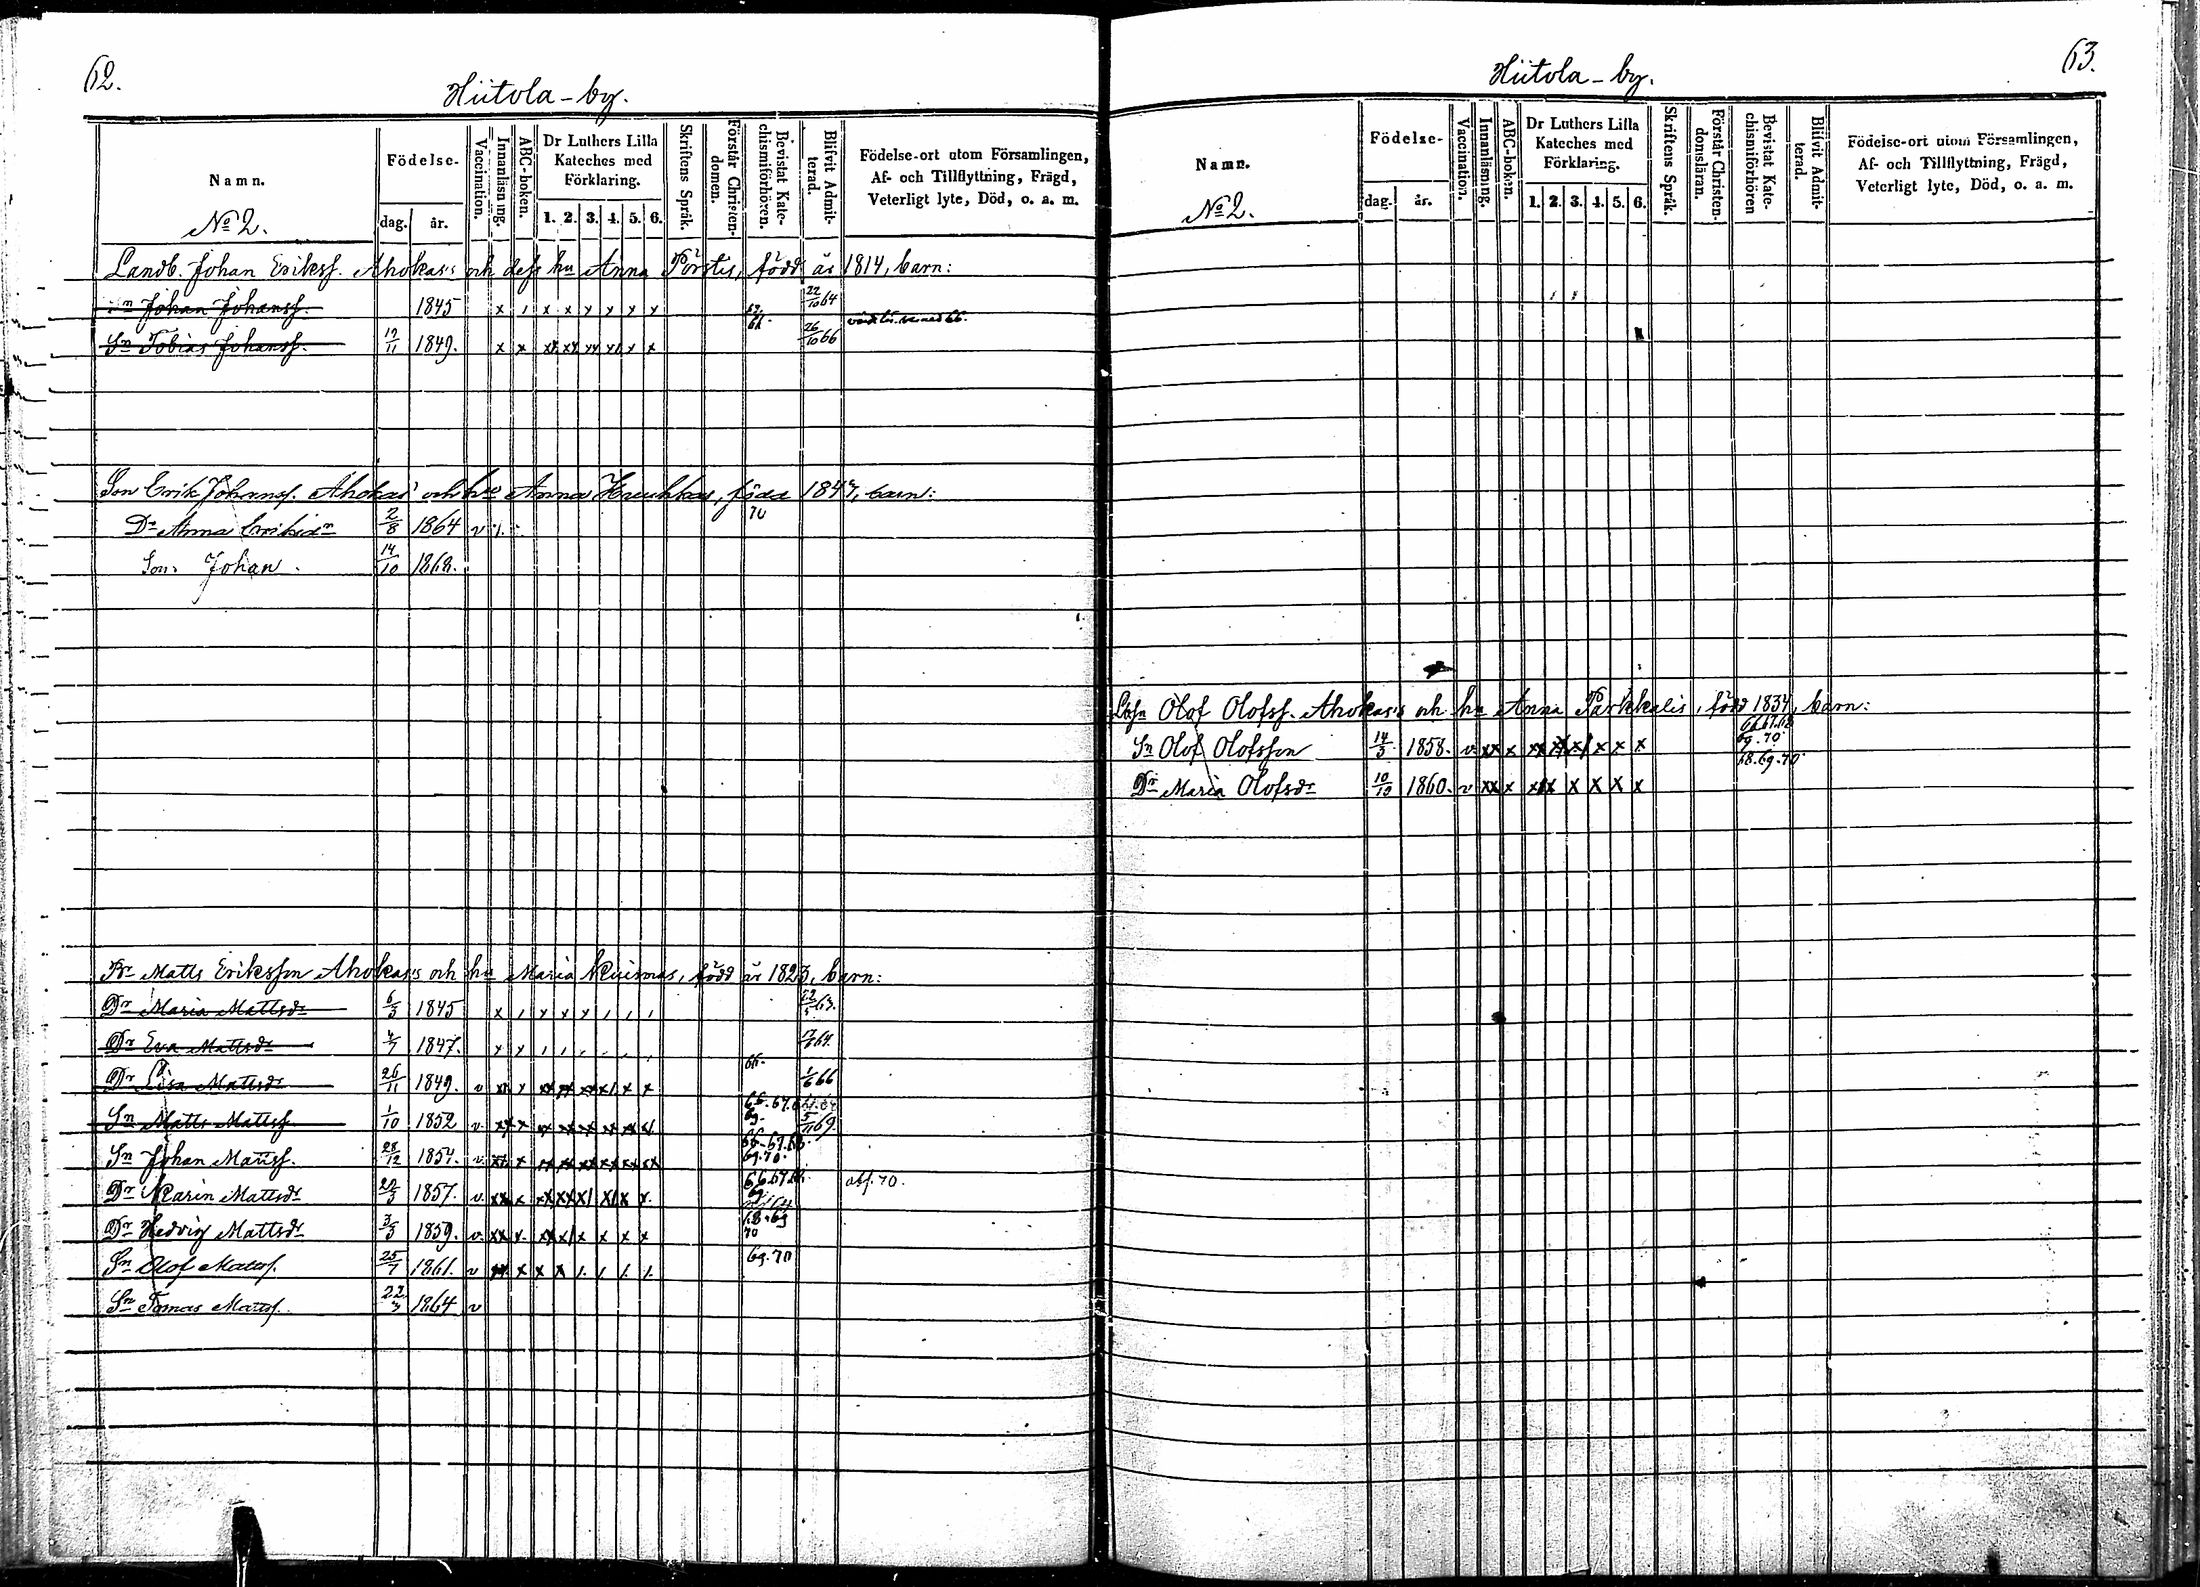 62.
Hiitola-by.
Namn.
Födelse-
dag. år.
Vaccination.
Innanläsning.
ABC-boken.
Dr Luthers Lilla Kateches med Förklaring.
1. 2. 3. 4. 5. 6.
Skriftens Språk.
Förstår Christendomen.
Bevistat Katechismiförhören.
Blifvit Admitterad.
Födelse-ort utom Församlingen, Af- och Tillflyttning, Frägd, Veterligt lyte, Död, o. a. m.
No 2.
Landb. Johan Eriksf. Ahokas och dess hu Anna född år 1814, barn:
Johan Johansf. 1845 x / x x x x x x 22/10 64
Sn Tobias Johansf. 17/11 1849. x x 26/10 66
Son Erik Johansf. Ahokas och Anna född barn:
70
Dr Anna 2/8 1864 v
Son. Johan. 14/10 1868.
Br Matts Eriksson Ahokas och hu Maria Kuismas, född år 1823, barn:
Dr Maria Mattsdr 6/3 1845 63.
Dr Eva Mattsdr 1847. 64.
Dr Lisa Mattsdr 26/11 1849. v 66. 1/6 66
Sn Matts Mattsf. 1/10 1852 v 66. 67. 69. 5/11 69
Sn Johan Mattsf. 28/12 1854. v 66. 67. 68. 69. 70.
Dr Karin Mattsdr 1857. v 66. 67. 69 70.
Dr Hedvig Mattsdr 1859. v 68. 69 70
Sn Olof Mattsf. 25/7 1861. v 69. 70
Sn Tomas Mattsf. 22/3 1864 v
63.
Hiitola-by.
Namn.
Födelse-
dag. år.
Vaccination.
Innanläsning.
ABC-boken.
Dr Luthers Lilla Kateches med Förklaring.
1. 2. 3. 4. 5. 6.
Skriftens Språk.
Förstår Christendomsläran.
Bevistat Katechismiförhören
Blifvit Admitterad.
Födelse-ort utom Församlingen, Af- och Tillflyttning, Frägd, Veterligt lyte, Död, o. a. m.
No 2.
Olof Olofsf. Ahokas och hu Anna född 1834, barn:
Sn Olof Olofsson 14/3 1858. v xx x x x x 66. 67. 68 69. 70
Dr Maria Olofsdr 10/10 1860. v xx x x x x x 68. 69. 70